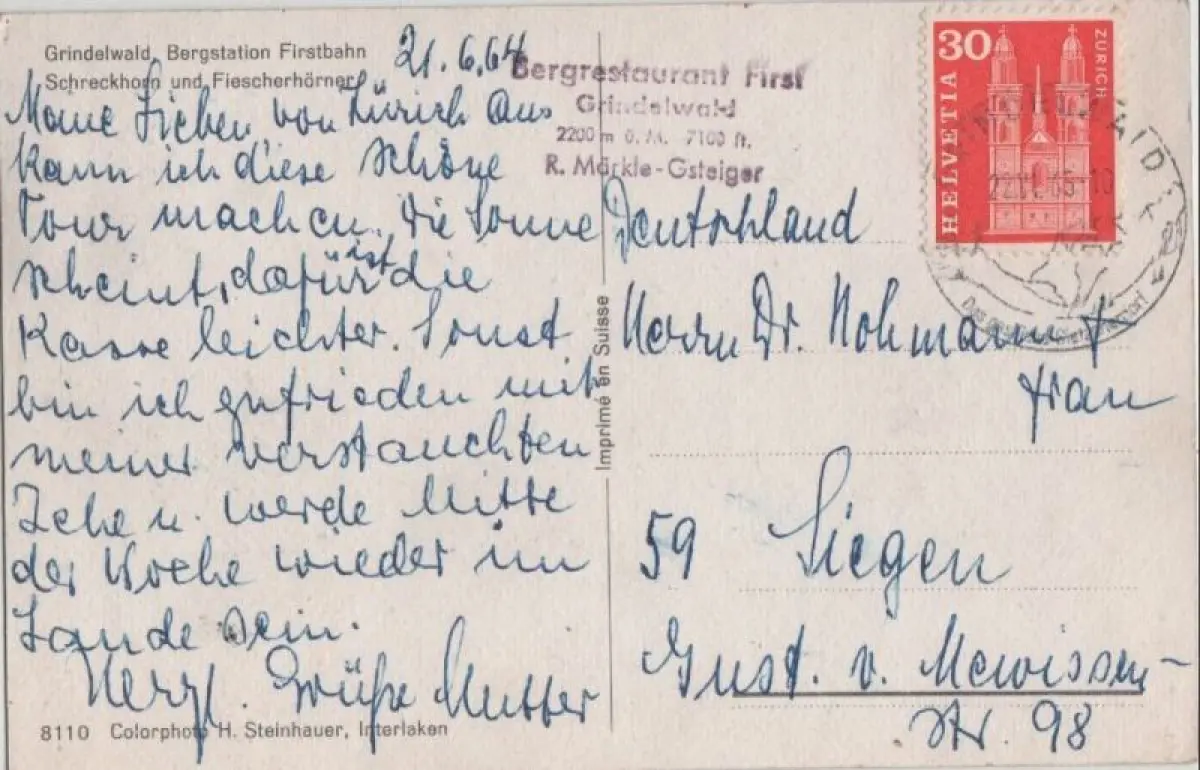 Grindelwald, Bergstation Firstbahn
Schreckhorn und Fiescherhörner
21.6.64
Meine Lieben, von Zürich aus
kann ich diese schöne
Tour machen. Die Sonne
scheint, dafür ist die
Kasse leichter. Sonst
bin ich zufrieden mit
meiner verstauchten
Zehe u. werde Mitte
der Woche wieder im
Lande sein.
Herzl. Grüße Mutter
8110 Colorphoto H. Steinhauer, Interlaken
Imprimé en Suisse
Bergrestaurant First
Grindelwald
2200 m ü. M. 7100 ft.
R. Märkle-Gsteiger
30
HELVETIA
ZÜRICH
Deutschland
Herrn Dr. Nohmann +
Frau
59 Siegen
Gust. v. Mewissen-
Str. 98